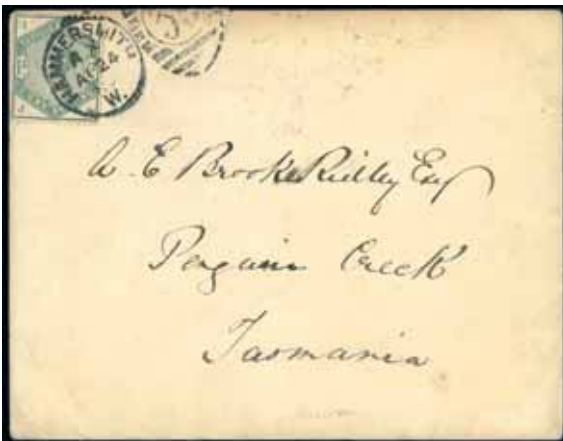 HAMMERSMITH
A
AP 24
W.
A. E Brooke Ridley Esq
Penguin Creek
Tasmania